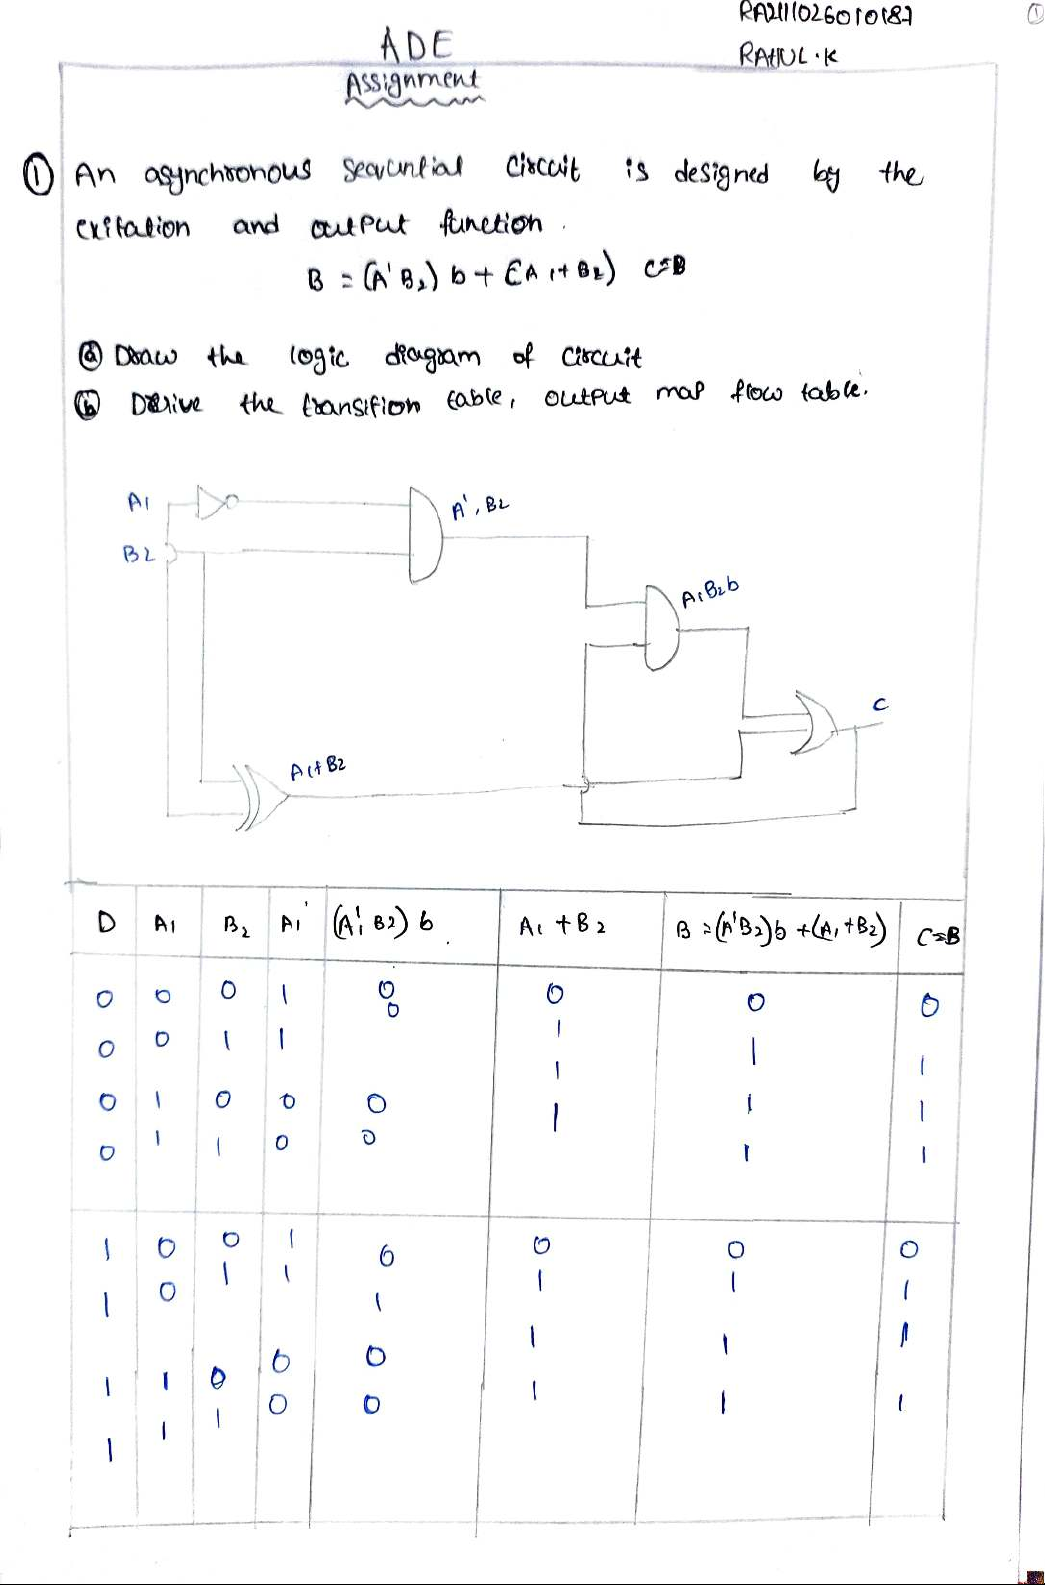 RA2111026010187
①
ADE
RAHUL.K
Assignment
① An asynchronous sequential circuit is designed by the
exitation and output function.
B = (A' B2) b + (A1 + B2) C=B
ⓐ Draw the logic diagram of circuit
ⓑ Derive the transition table, output map flow table.
A1
A', B2
B2
A1B2b
C
A1+B2
D A1 B2 A1' (A1' B2) b A1 + B2 B = (A'B2)b + (A1+B2) C=B
0 0 0 1 0 0 0 0
0 0 1 1 0 1 1 1
0 1 0 0 0 1 1 1
0 1 1 0 0 1 1 1
1 0 0 1 0 0 0 0
1 0 1 1 1 1 1 1
1 1 0 0 0 1 1 1
1 1 1 0 0 1 1 1